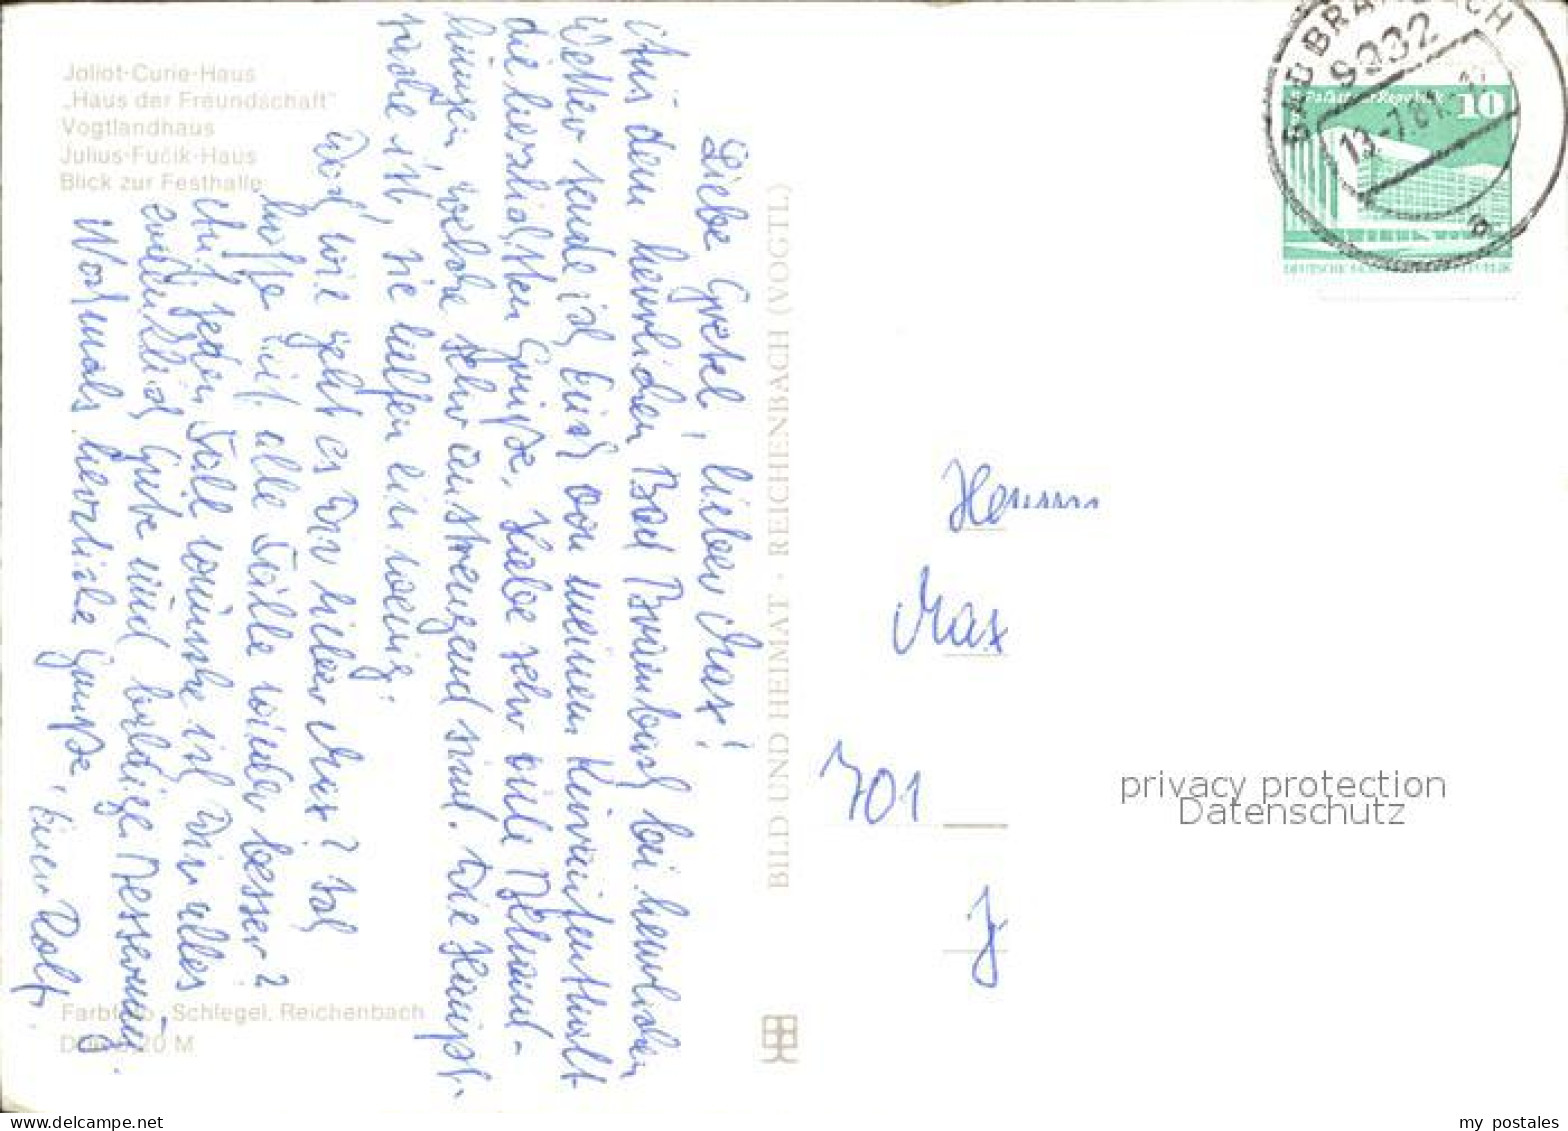 Joliot-Curie-Haus
„Haus der Freundschaft"
Vogtlandhaus
Julius-Fučik-Haus
Blick zur Festhalle
Liebe Gretel, lieber Max!
Aus dem herrlichen Bad Brambach bei herrlichem
Wetter sende ich Euch von meinem Kuraufenthalt
die herzlichsten Grüße. Habe sehr viele Behand-
lungen, welche sehr anstrengend sind. Die Haupt-
sache ist, sie helfen ein wenig.
Und wie geht es Dir lieber Max? Ich
hoffe auf alle Fälle wieder besser?
Auf jeden Fall wünsche ich Dir alles
Gute und baldige Besserung.
Nochmals herzliche Grüße, Euer Rolf.
Farbfoto: Schlegel, Reichenbach
0,20 M
BILD UND HEIMAT · REICHENBACH (VOGTL)
BAD BRAMBACH
9932
13.-7.81.-1
a
10
DEUTSCHE
Herrn
Max
701
J
privacy protection
Datenschutz
my postales